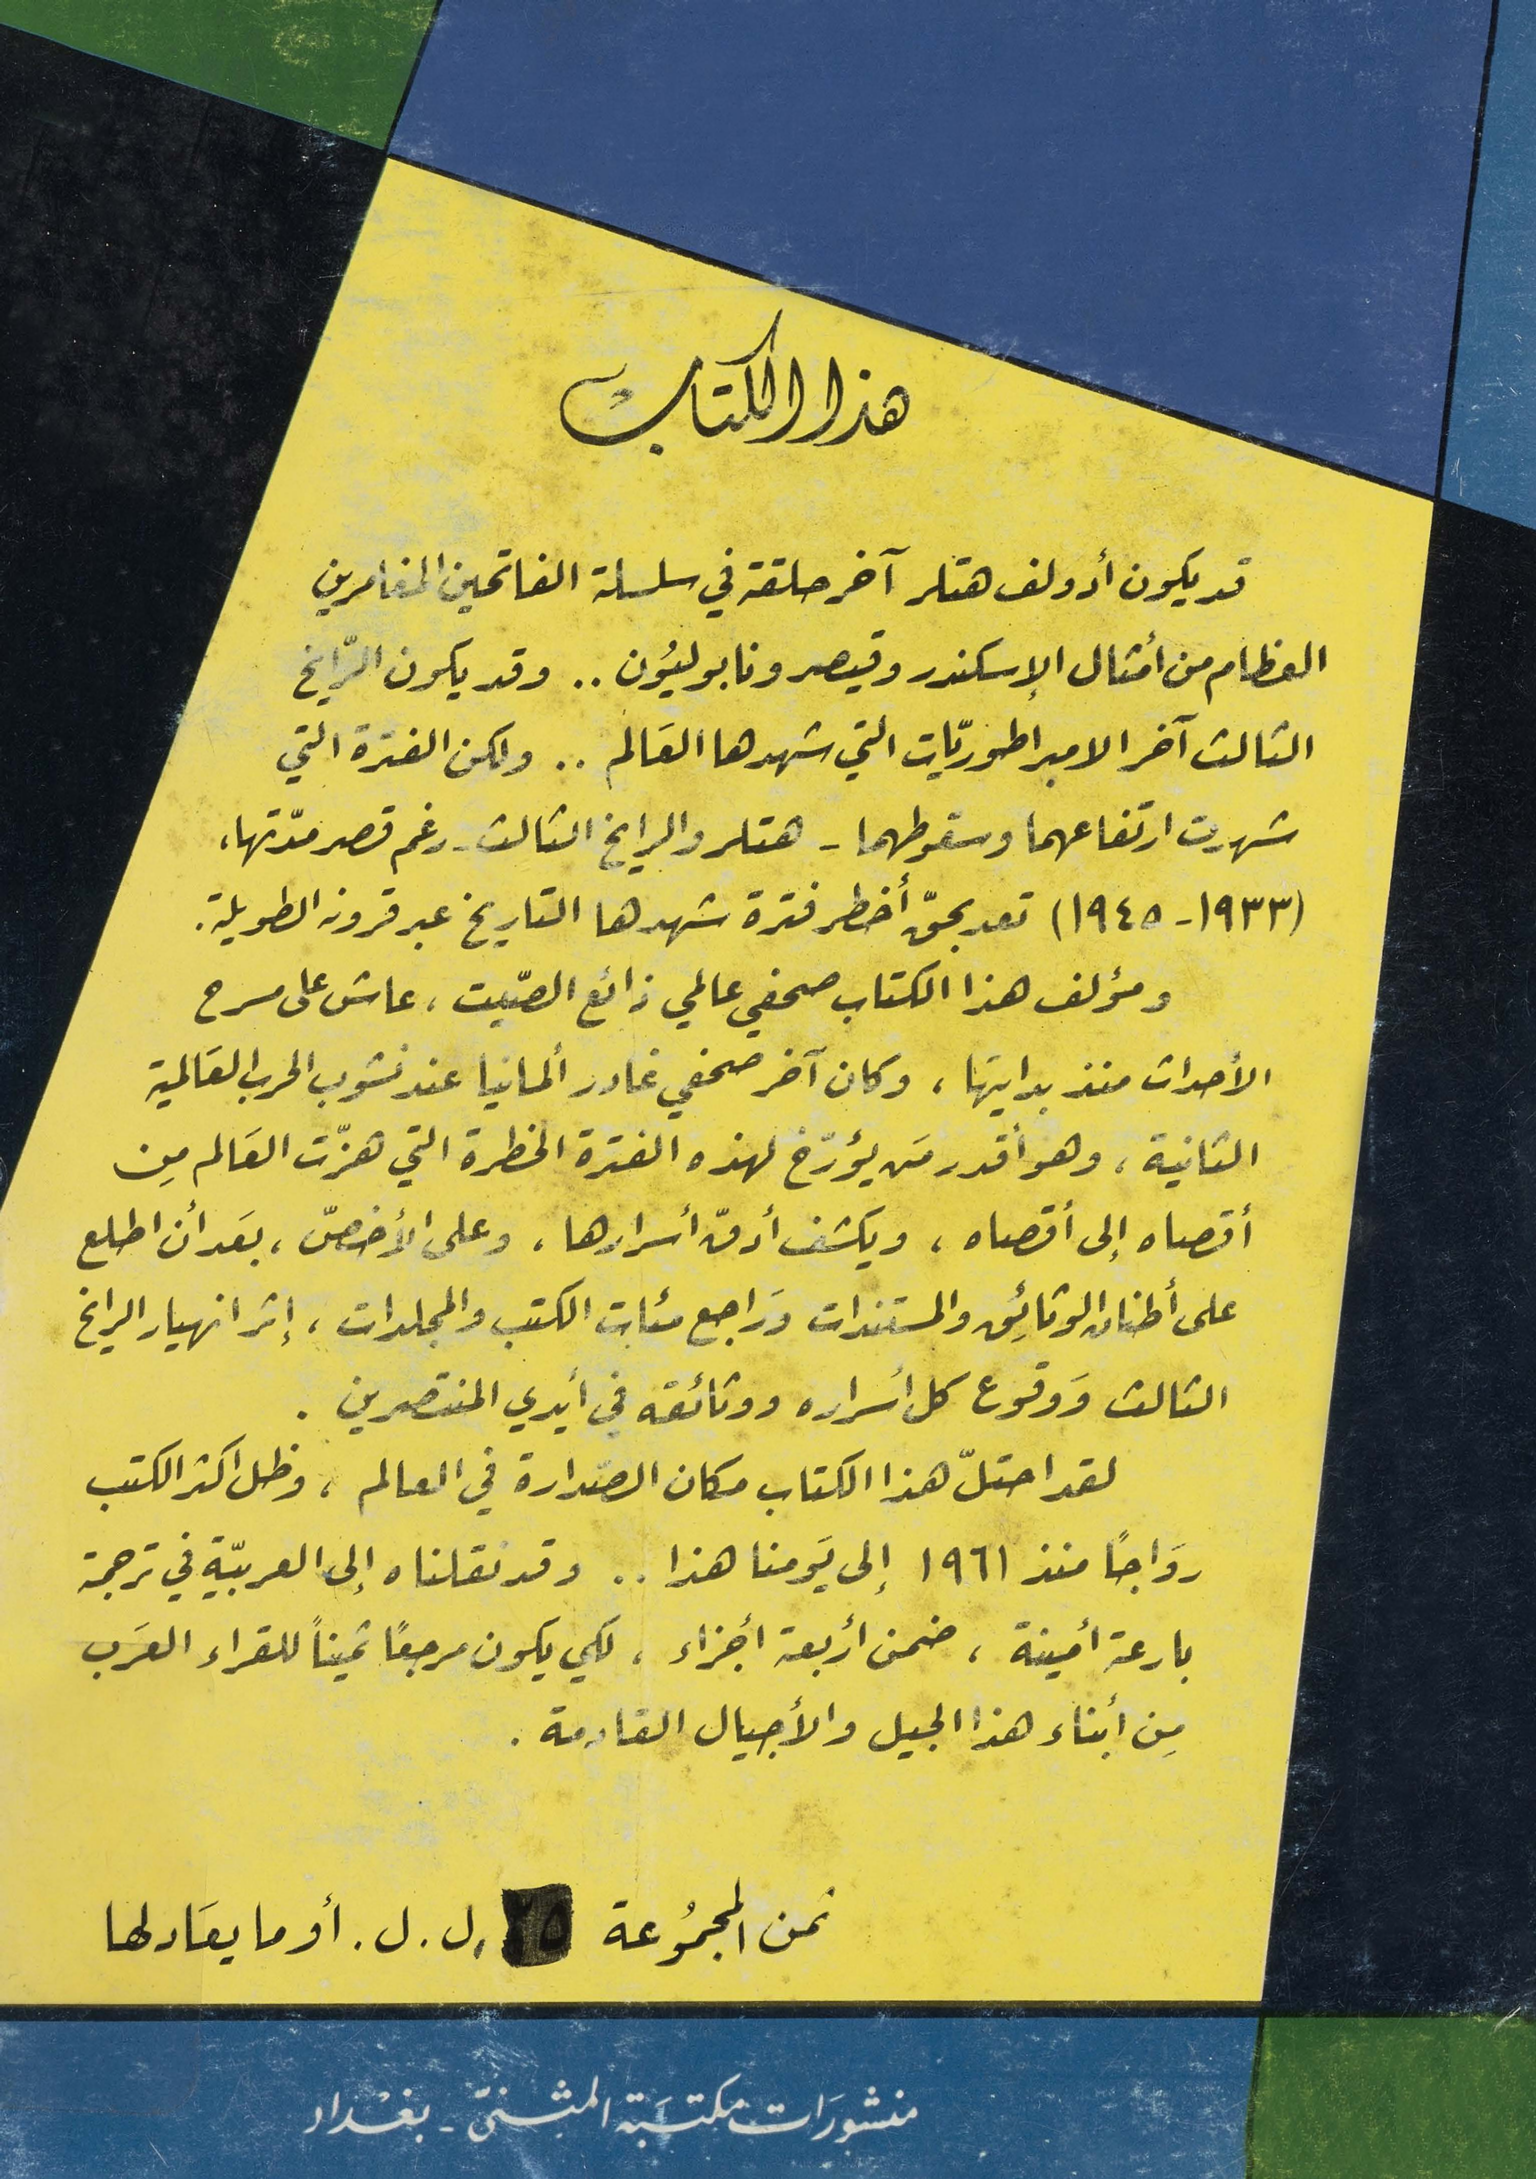 هذا الكتاب
قد يكون أدولف هتلر آخر حلقة في سلسلة الفاتحين المغامرين
العظام من أمثال الإسكندر وقيصر ونابوليُون .. وقد يكون الرّايخ
الثالث آخر الامبراطوريّات التي شهدها العَالم .. ولكن الفترة التي
شهدت ارتفاعهما وسقوطهما - هتلر والرايخ الثالث - رغم قصر مدّتها،
(١٩٣٣ - ١٩٤٥) تعد بحقّ أخطر فترة شهدها التاريخ عبر قرونه الطويلة.
ومؤلف هذا الكتاب صحفي عالمي ذائع الصّيت ، عاش على مسرح
الأحداث منذ بدايتها ، وكان آخر صحفي غادر ألمانيا عند نشوب الحرب العَالمية
الثانية ، وهو أقدر مَن يؤرّخ لهذه الفترة الخطرة التي هزّت العَالم مِن
أقصاه إلى أقصاه ، ويكشف أدقّ أسرارها ، وعلى الأخصّ ، بعَد أن اطلع
على أطنان الوثائِق والمستندات وَراجع مئات الكتب والمجلدات ، إثر انهيار الرايخ
الثالث وَوقوع كل أسراره ووثائقه في أيدي المنتصرين .
لقد احتلّ هذا الكتاب مكان الصّدارة في العالم ، وظل اكثر الكتب
روَاجًا منذ ١٩٦١ إلى يَومنا هذا .. وقد نقلناه إلى العربيّة في ترجمة
بارعة أمينة ، ضمن أربعة أجزاء ، لكي يكون مرجعًا ثميناً للقراء العرَب
مِن أبناء هذا الجيل والأجيال القادمة .
ثمن المجمُوعة ٢٥ ل.ل. أو ما يعَادلها
منشورَات مكتبَة المثنىّ - بغْداد